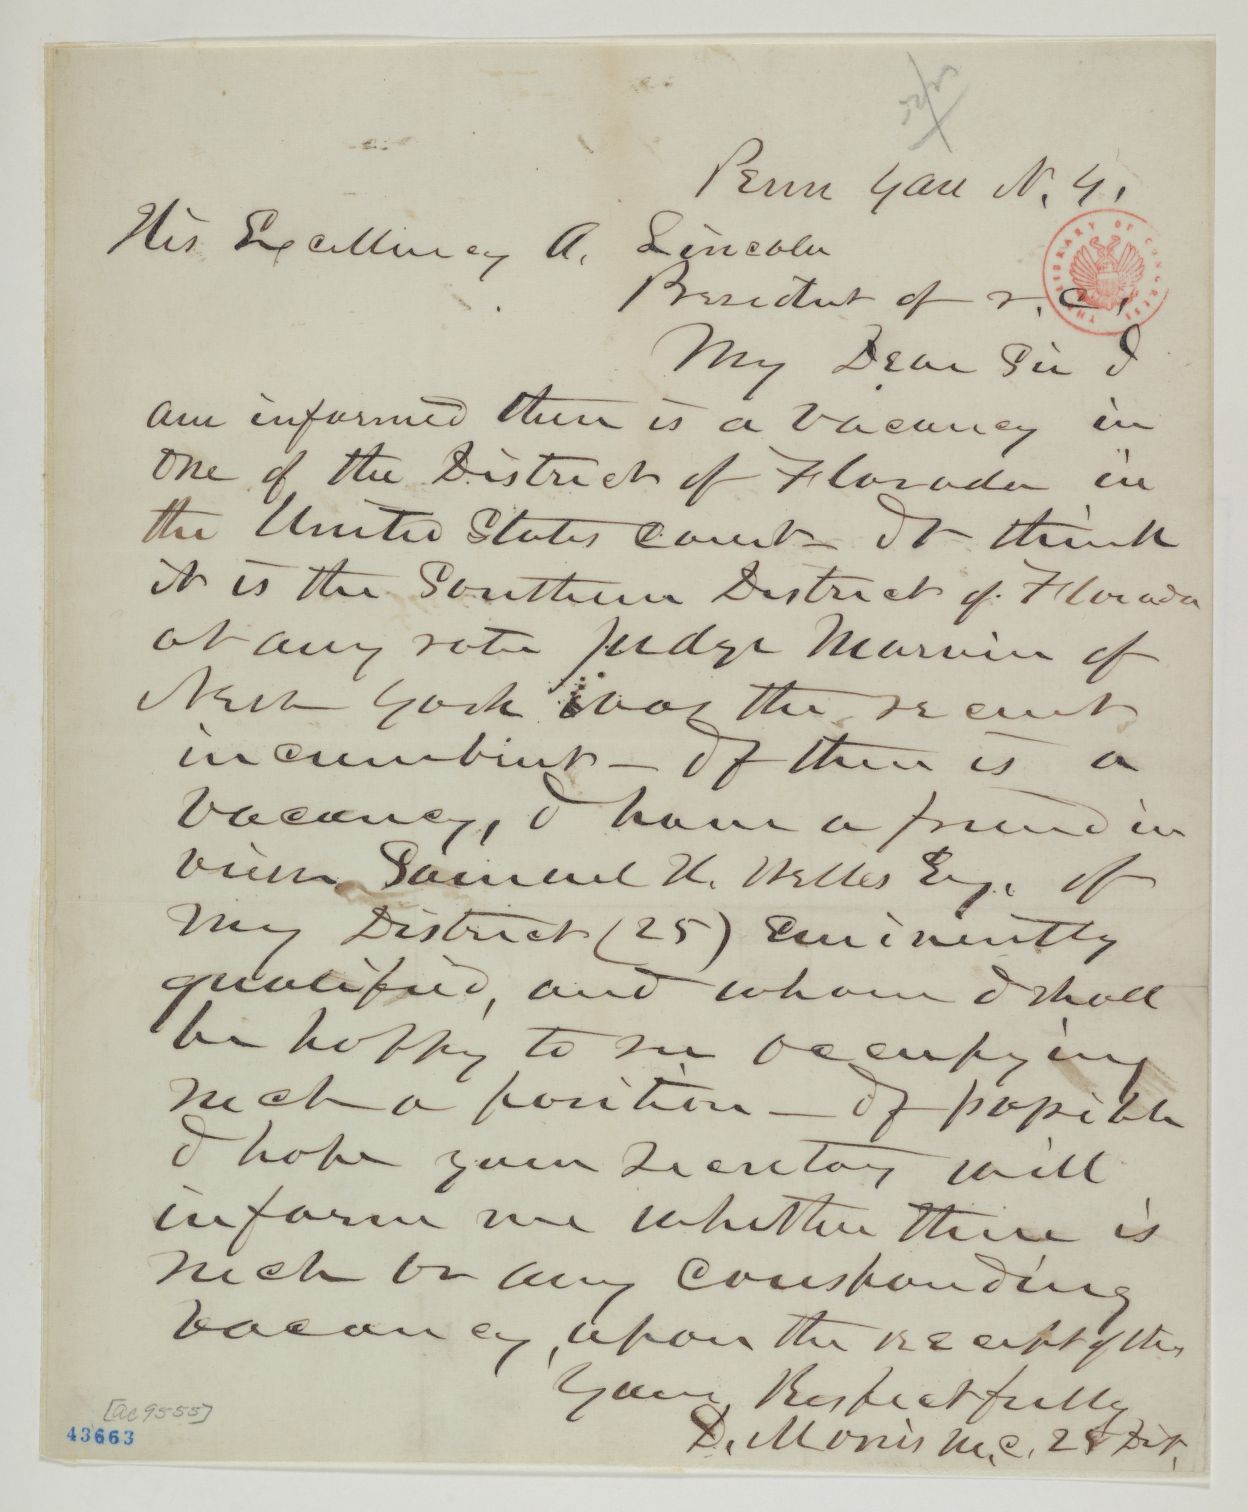 Penn Yan N. Y.
His Excellency A. Lincoln
President of
THE LIBRARY OF CONGRESS
My Dear Sir I
am informed there is a vacancy in
one of the District of Florada in
the United States Court – I think
it is the Southern District of Florada
at any rate Judge Marvin of
New York was the recent
incumbent – If there is a
vacancy, I have a friend in
view Samuel H. Welles Esq. of
my District (25) eminently
qualified, and whom I shall
be happy to see occupying
such a position – If possible
I hope your secretary will
inform me whether there is
such or any corresponding
vacancy, upon the receipt of this
Yours Respectfully
D. Morris M.C. 25 Dist,
[ac 9555]
43663